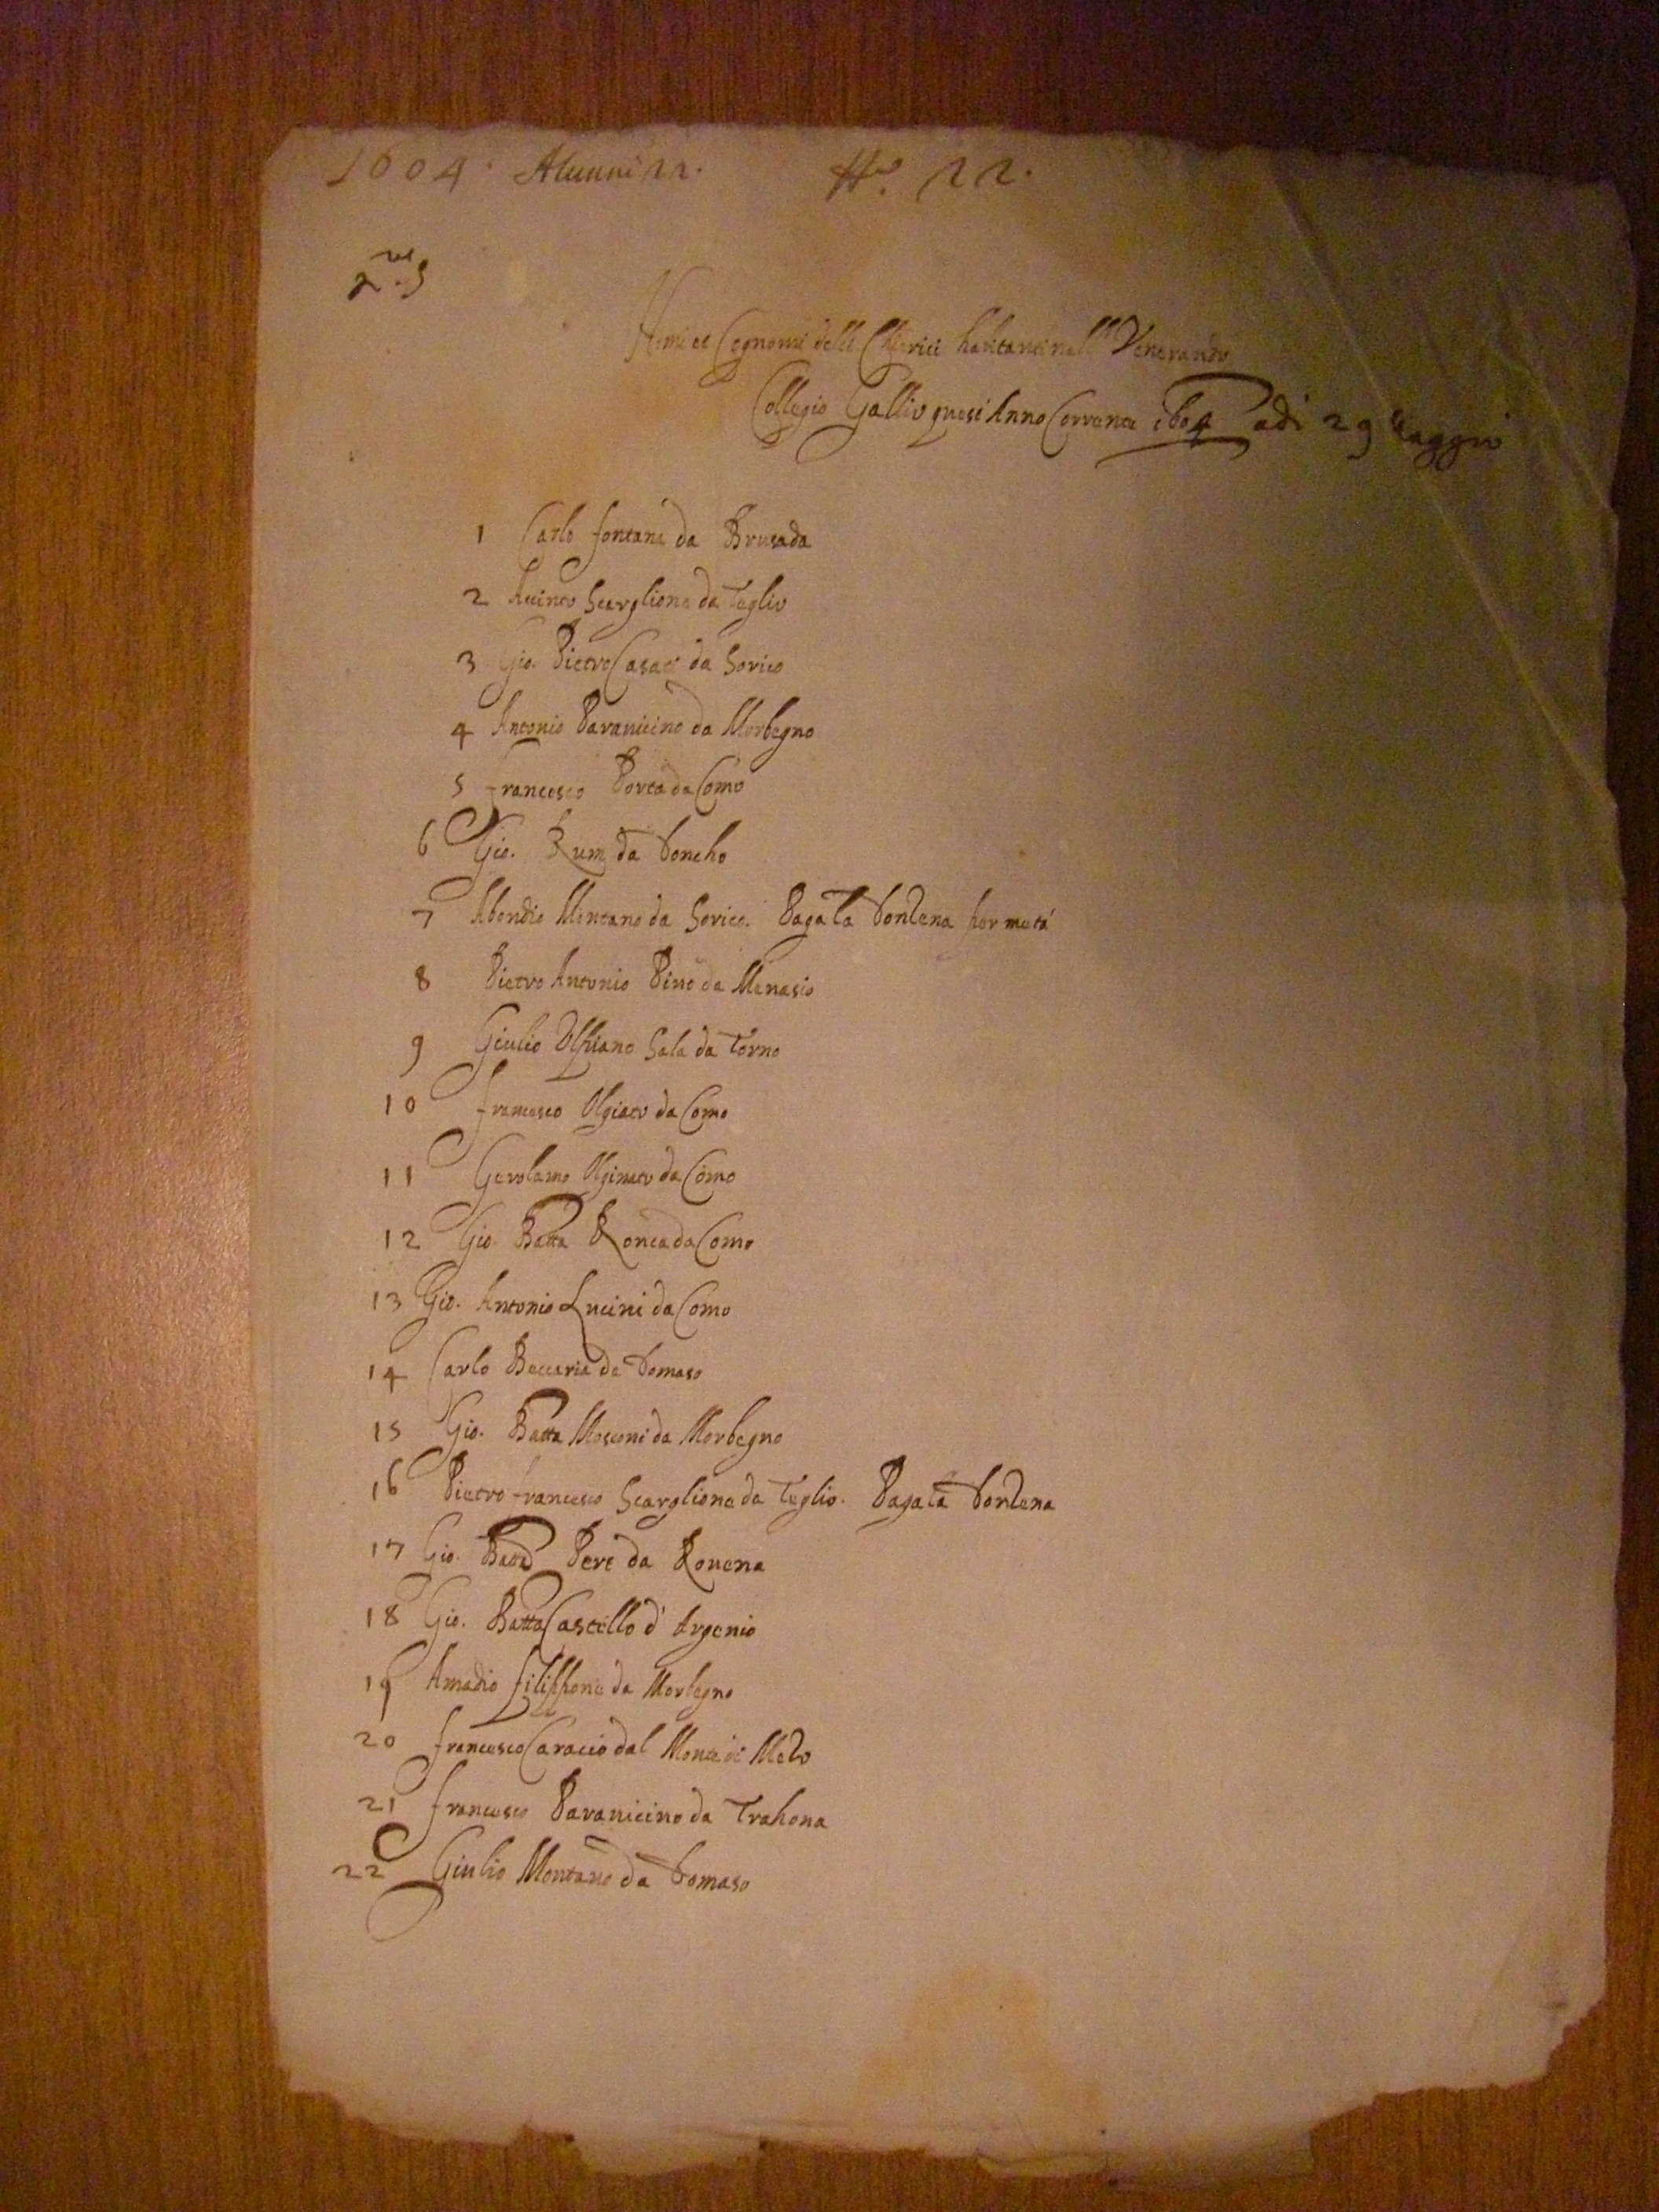 1604. Alunni 22. N.º 22.
Nomi et Cognomi delli Chierici habitanti nell Venerando
Collegio Gallio quest Anno Corrente 1604 adi 29 Maggio
1 Carlo fontana da Brusada
2 Scarglione da Teglio
3 Gio. Pietro Casati da Sorico
4 Antonio Paravicino da Morbegno
5 francesco Porta da Como
6 Gio. da Doncho
7 Abondio Montano da Sorico. Paga la Dozena per metá
8 Pietro Antonio Pino da Menasio
9 Giulio Ulpiano Sala da Torno
10 francesco Olgiato da Como
11 Gerolamo Olginato da Como
12 Gio. Batta Ronca da Como
13 Gio. Antonio Lucini da Como
14 Carlo Beccaria da Domaso
15 Gio. Batta Mosconi da Morbegno
16 Pietro francesco Scarglione da Teglio. Paga la Dozena
17 Gio. Batta Pere da Rovena
18 Gio. Batta Castello d' Argenio
19 Amadio filippone da Morbegno
20 francesco Caracio dal Monte di Melo
21 francesco Paravicino da Trahona
22 Giulio Montano da Domaso